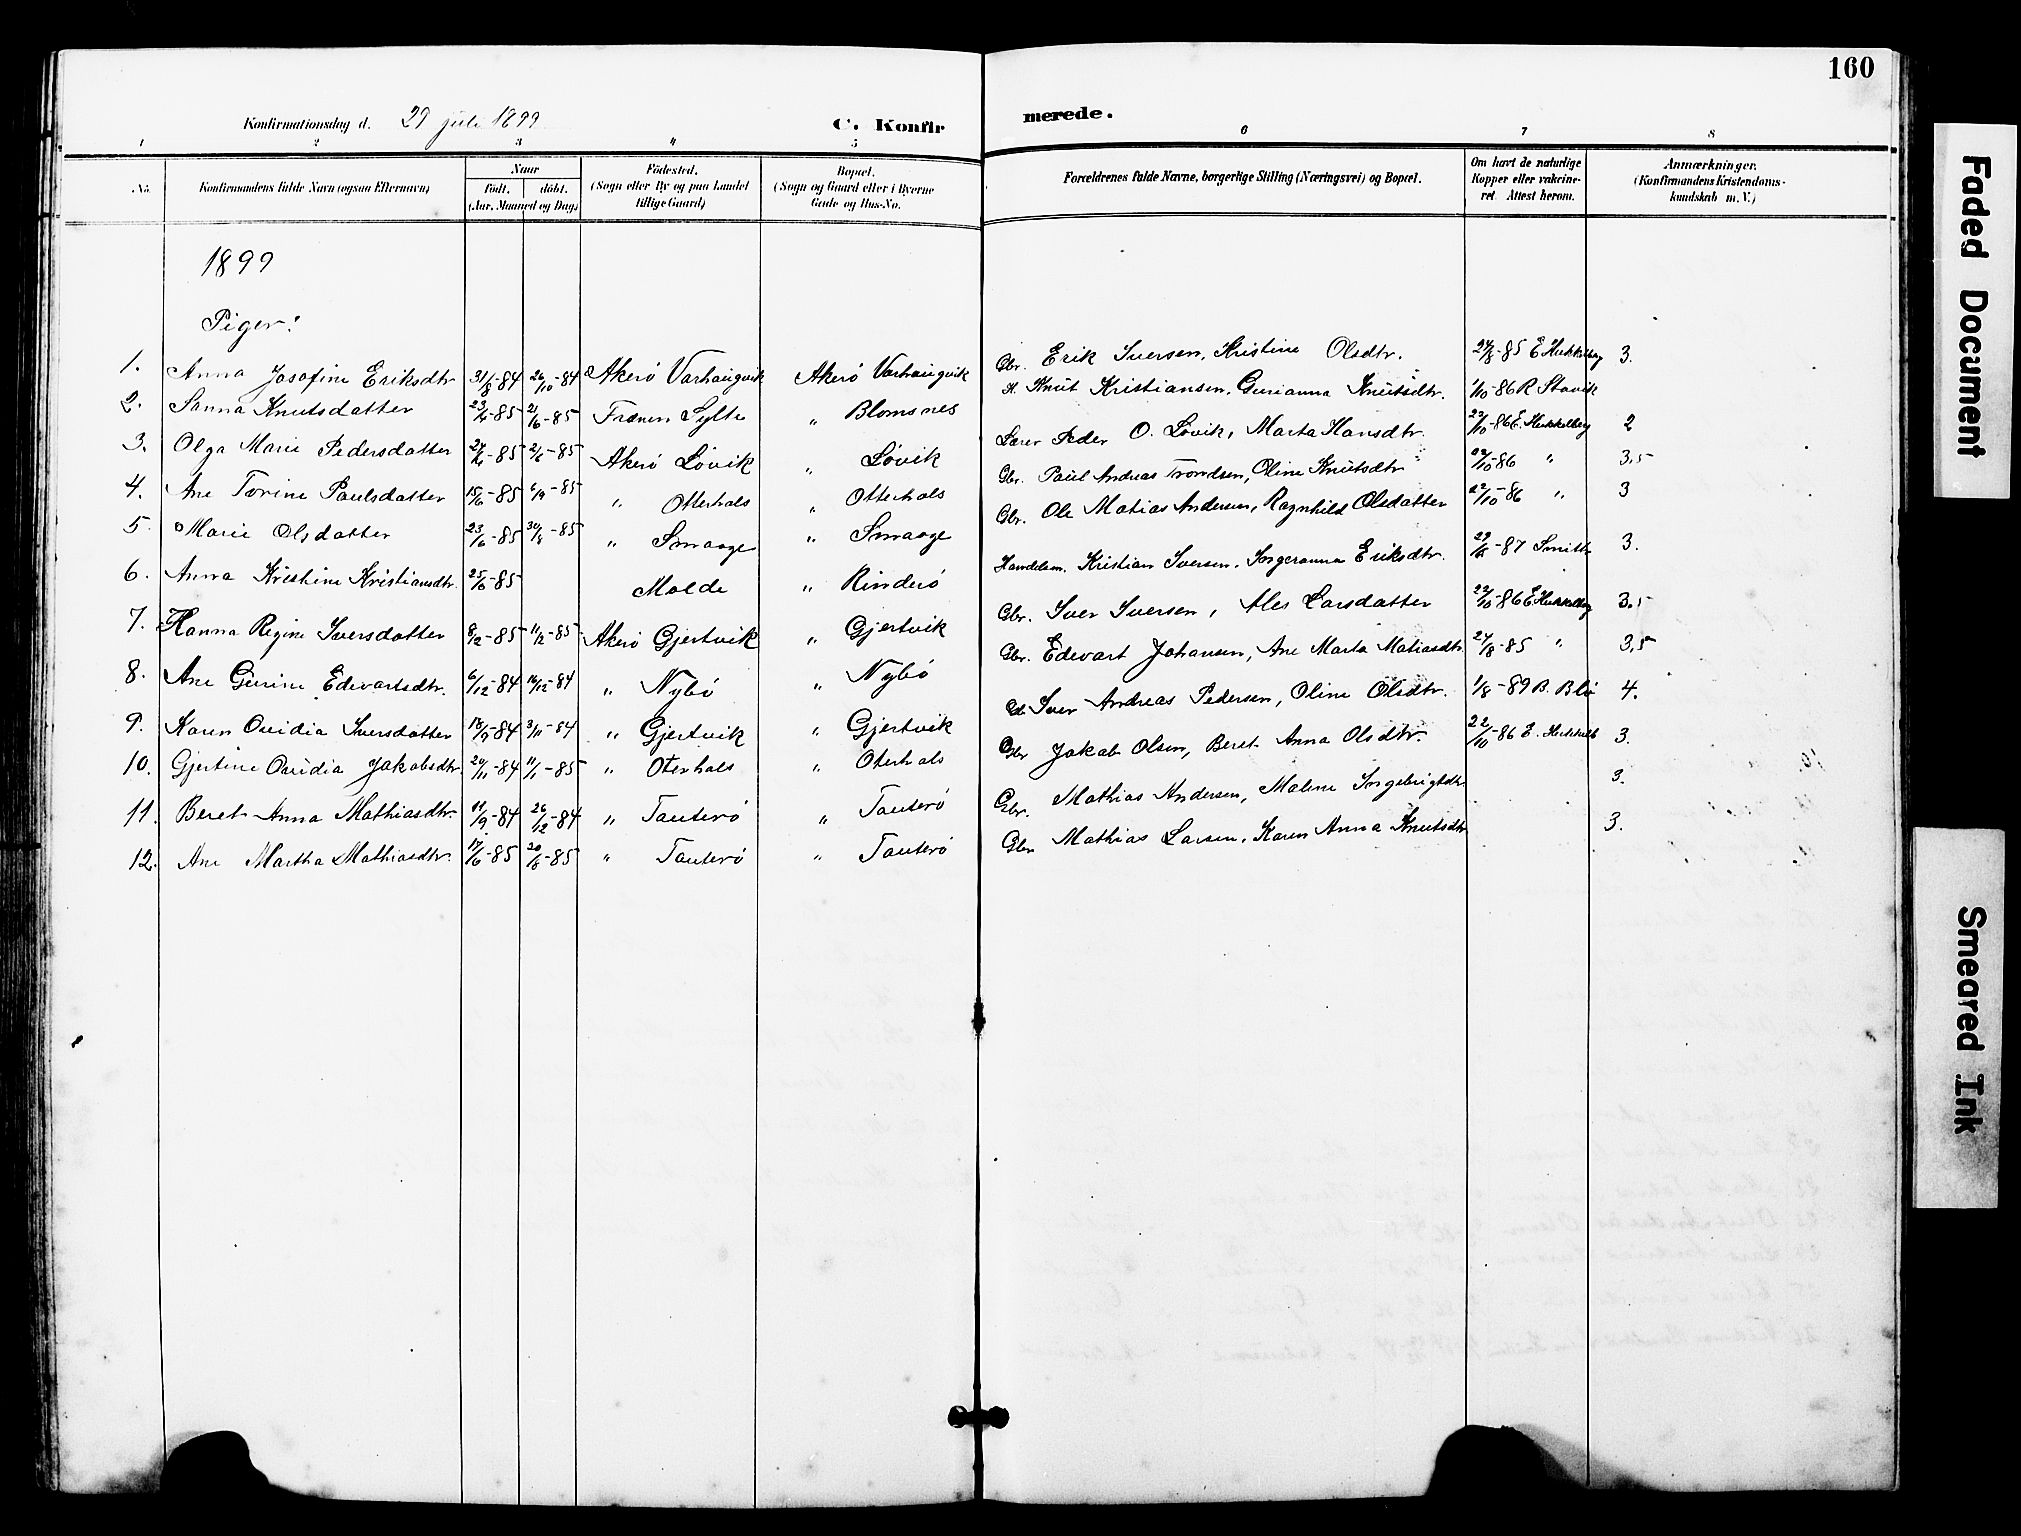 160
Konfirmationsdag d. 29 juli 1899
C. Konfirmerede.
1 2 3 4 5 6 7 8
No.
Konfirmandens fulde Navn (ogsaa Efternavn)
Naar
födt. döbt.
(Aar, Maaned og Dag)
Födested.
(Sogn eller By og paa Landet
tillige Gaard)
Bopæl.
(Sogn og Gaard eller i Byerne
Gade og Hus-No.
Forældrenes fulde Navne, borgerlige Stilling (Næringsvei) og Bopæl.
Om havt de naturlige
Kopper eller vakcine-
ret Attest herom.
Anmærkninger.
(Konfirmandens Kristendoms-
kundskab m. V.)
1899
Piger:
1. Anna Josofine Eriksdtr 31/8-84 26/10-84 Akerö Varhaugvik Akerö Varhaugvik Gbr. Erik Iversen, Kristine Olsdtr. 24/8-85 E Hukkelberg 3.
2. Sanna Knutsdatter 23/4-85 21/6-85 Frænen Sylte " Blomsnes Knut Kristiansen, Gurianna Knutsdtr. 1/10-86 R Stavik
3. Olga Marie Pedersdatter 85 2/6-85 Akerö Lövik " Lövik Lærer Peder O. Lövik, Marta Hansdtr. 22/10-86 E. Hukkelberg 2
4. Ane Torine Paulsdatter 15/6-85 6/9-85 " Otterhals " Otterhals Gbr. Paul Andreas Trondsen, Oline Knutsdtr 22/10-86 " 3,5
5. Marie Olsdatter 23/6-85 30/8-85 " Smaage " Smaage Gbr. Ole Matias Andersen, Ragnhild Olsdatter 22/10-86 " 3
6. Anna Kristine Kristiansdtr. 25/6-85 Molde " Rinderö Handelsm. Kristian Iversen, Ingeranna Eriksdtr. 87 Smith 3.
7. Hanna Regine Iversdatter 85 11/12-85 Akerö Gjertvik " Gjertvik Gbr. Iver Iversen, Ales Larsdatter 22/10-86 E Hukkelberg 3.5
8. Ane Gurine Edevartsdtr. 6/12-84 16/12-84 " Nybö " Nybö Gbr. Edevart Johansen, Ane Marta Matiasdtr. 27/8-85 " 3,5
9. Karen Ovidia Iversdatter 18/9-84 3/11-84 " Gjertvik " Gjertvik Iver Andreas Pedersen, Oline Olsdtr. 1/8-89 B. Blö 4.
10. Gjertine Ovidia Jakobsdtr 20/11-84 11/1-85 " Oterhals " Oterhals Gbr Jakob Olsen, Beret Anna Olsdtr. 22/10-86 E. Hukkelb 3.
11. Beret Anna Mathiasdtr. 11/9-84 26/12-84 " Tauterö " Tauterö Gbr. Mathias Andersen, Malene Ingebrigtdtr 3.
12. Ane Martha Mathiasdtr. 17/6-85 30/8-85 " Tauterö " Tauterö Gbr Mathias Larsen, Karen Anna Knutsdtr 3.
Faded Document
Smeared Ink